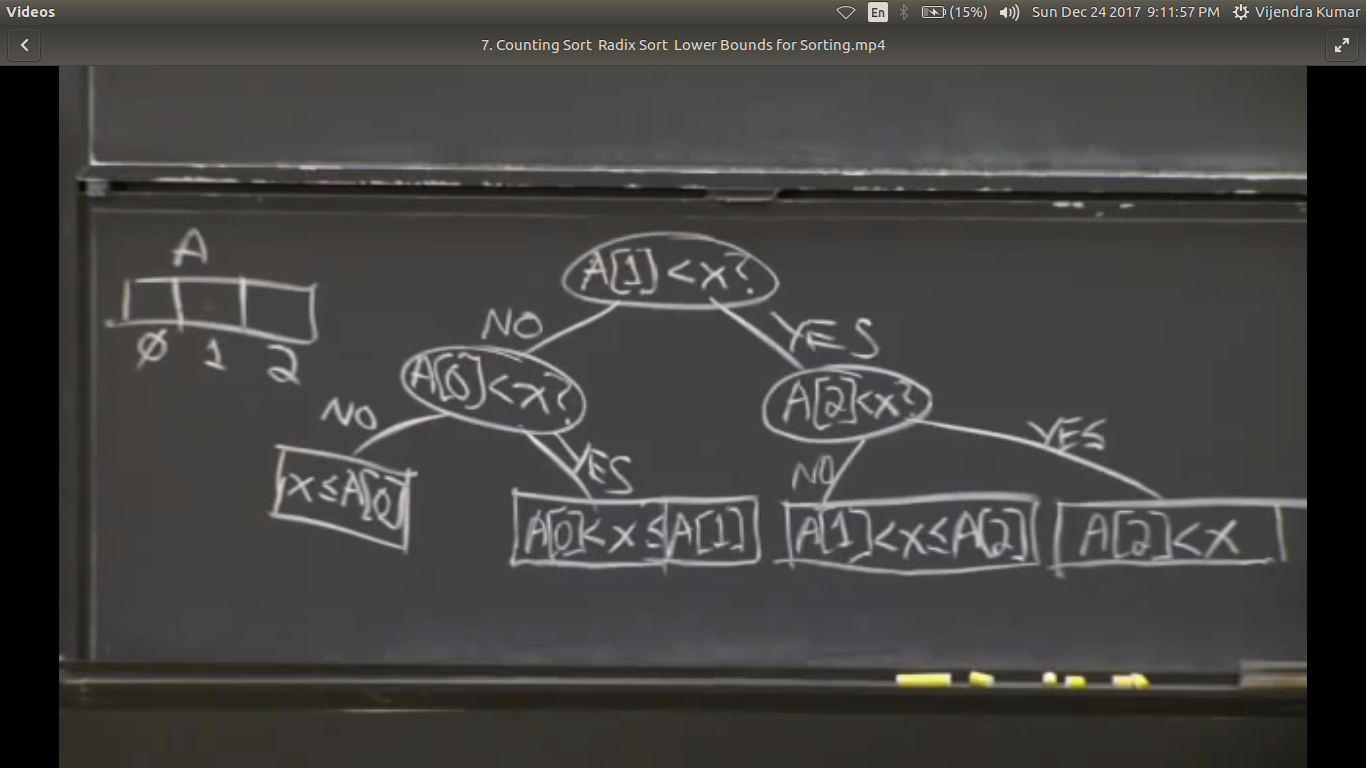 Videos
En
(15%)
Sun Dec 24 2017 9:11:57 PM
Vijendra Kumar
7. Counting Sort Radix Sort Lower Bounds for Sorting.mp4
A
0 1 2
A[1]<x?
NO
YES
A[0]<x?
A[2]<x?
NO
YES
NO
YES
x≤A[0]
A[0]<x≤A[1]
A[1]<x≤A[2]
A[2]<x